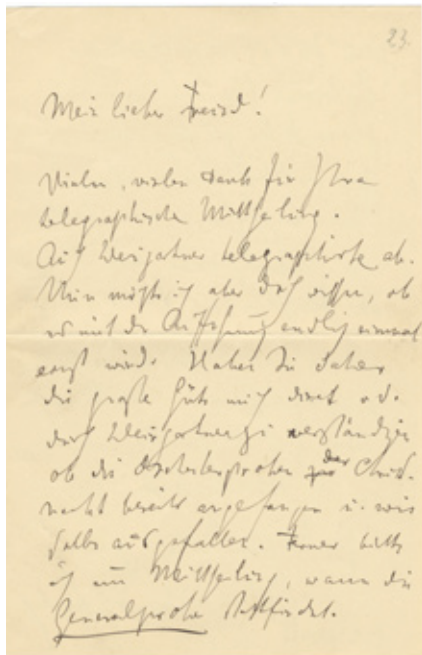 23.
Mein lieber Freund!
Vielen, vielen Dank für Ihre
telegraphische Mittheilung.
Auch Weingartner telegraphirte ab.
Nun möchte ich aber doch wissen, ob
es mit der Aufführung endlich einmal
ernst wird. Haben Sie daher
die große Güte mich direct od.
durch Weingartner zu verständigen
ob die Orchesterproben der Christ-
nacht bereits angefangen u. wie
selbe ausgefallen. Ferner bitte
ich um Mittheilung, wann die
Generalprobe stattfindet.